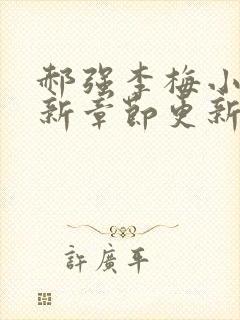 郝强李梅小
新章节更新
許廣平